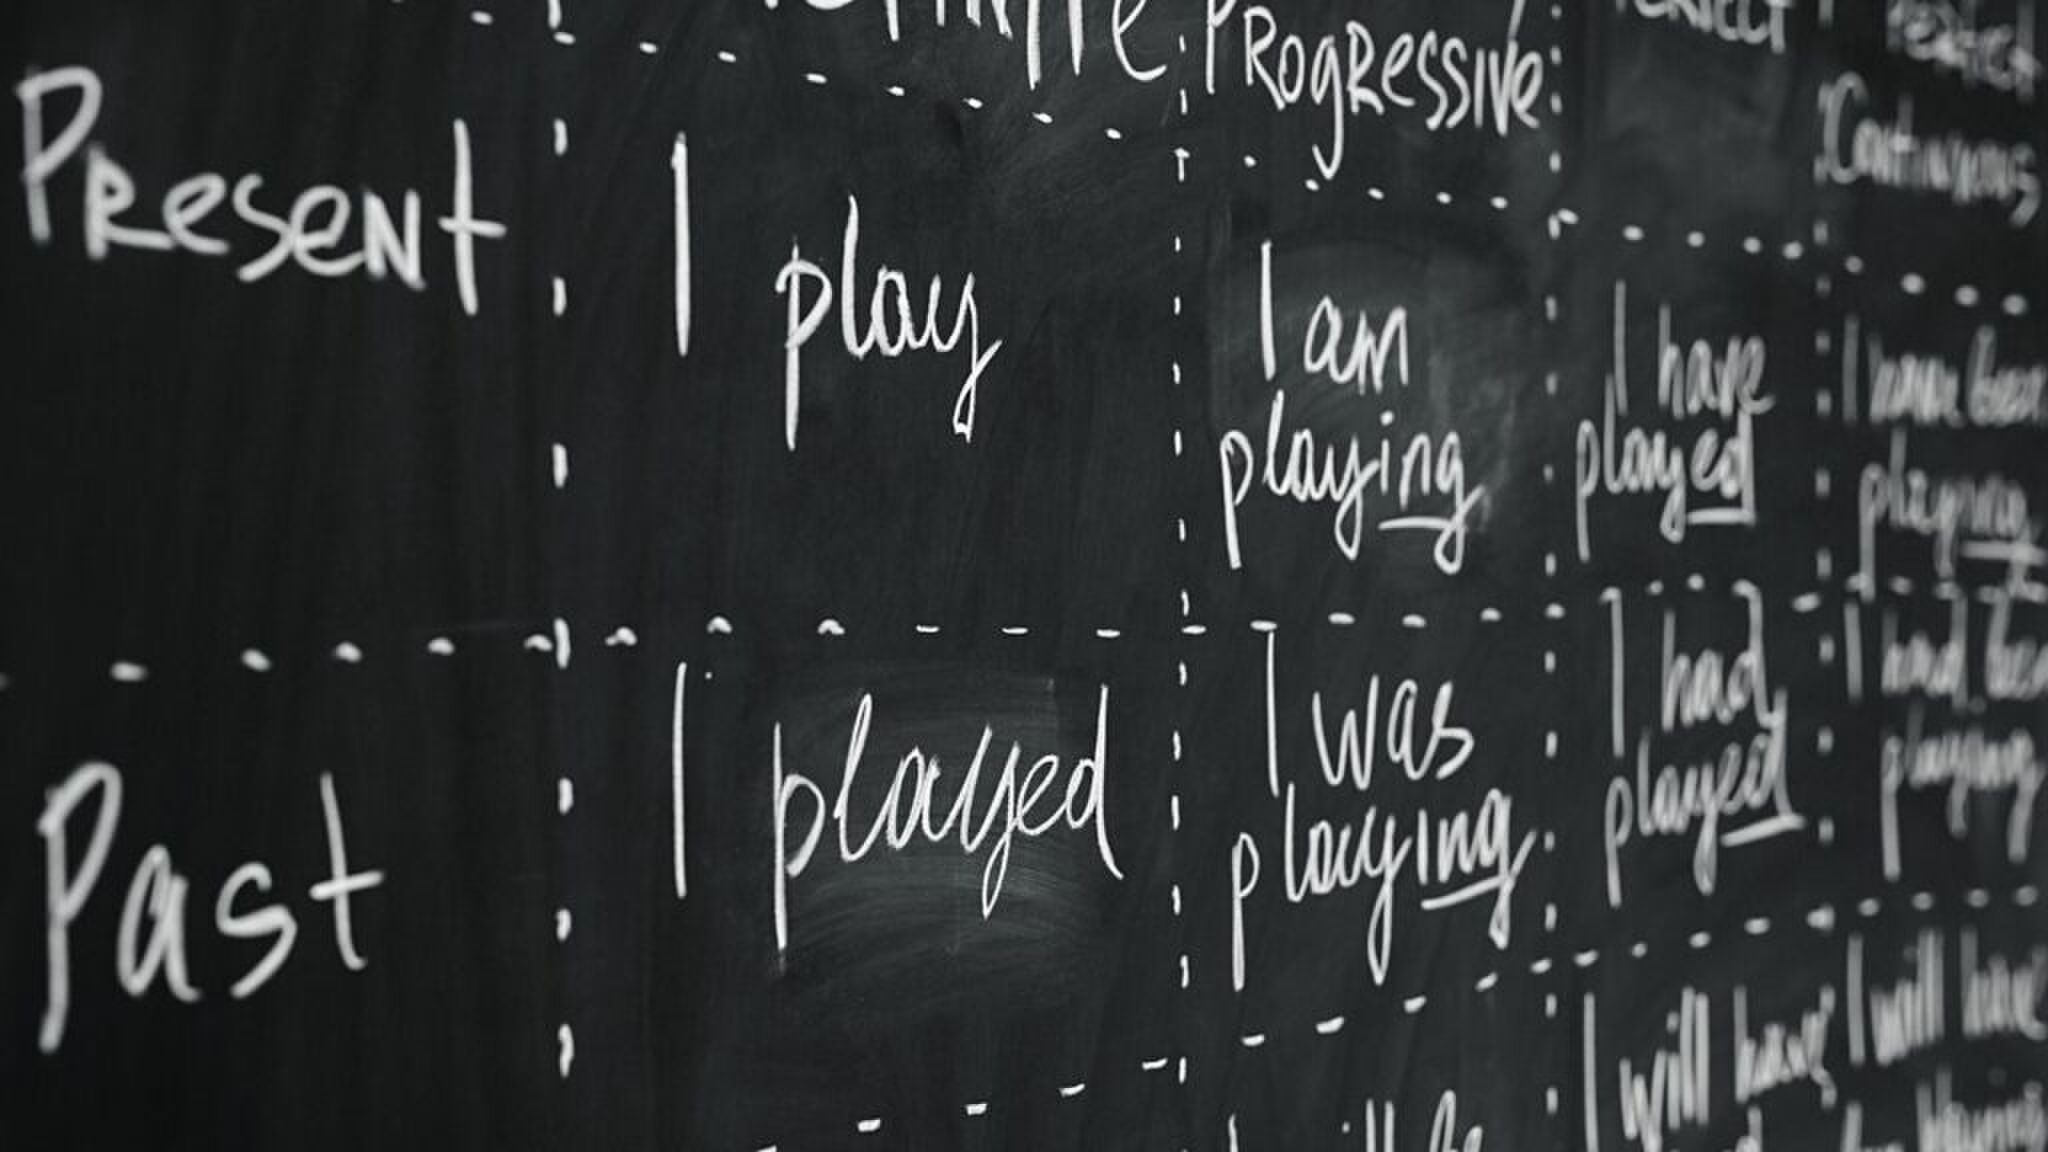 Progressive
Perfect
Continuous
Present
I play
I am
playing
I have
played
I have been
playing
Past
I played
I was
playing
I had
played
I had been
playing
I will have
I will have